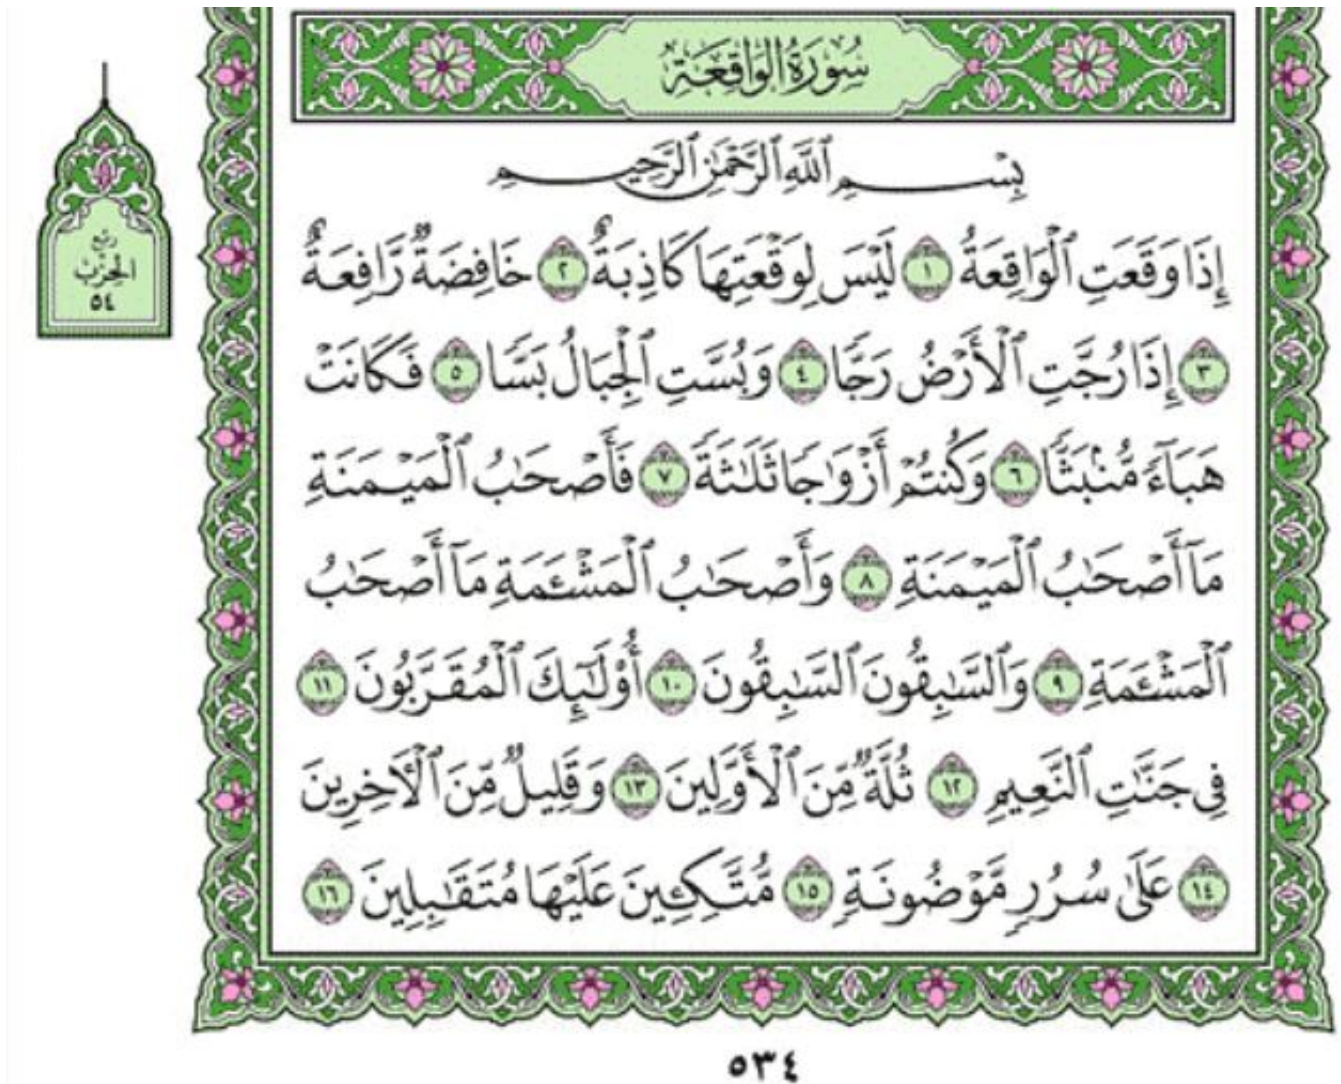 سُورَةُ الوَاقِعَةِ
بِسْمِ ٱللَّهِ ٱلرَّحْمَٰنِ ٱلرَّحِيمِ
إِذَا وَقَعَتِ ٱلْوَاقِعَةُ ١ لَيْسَ لِوَقْعَتِهَا كَاذِبَةٌ ٢ خَافِضَةٌ رَّافِعَةٌ
٣ إِذَا رُجَّتِ ٱلْأَرْضُ رَجًّا ٤ وَبُسَّتِ ٱلْجِبَالُ بَسًّا ٥ فَكَانَتْ
هَبَآءً مُّنۢبَثًّا ٦ وَكُنتُمْ أَزْوَٰجًا ثَلَٰثَةً ٧ فَأَصْحَٰبُ ٱلْمَيْمَنَةِ
مَآ أَصْحَٰبُ ٱلْمَيْمَنَةِ ٨ وَأَصْحَٰبُ ٱلْمَشْـَٔمَةِ مَآ أَصْحَٰبُ
ٱلْمَشْـَٔمَةِ ٩ وَٱلسَّٰبِقُونَ ٱلسَّٰبِقُونَ ١٠ أُو۟لَٰٓئِكَ ٱلْمُقَرَّبُونَ ١١
فِى جَنَّٰتِ ٱلنَّعِيمِ ١٢ ثُلَّةٌ مِّنَ ٱلْأَوَّلِينَ ١٣ وَقَلِيلٌ مِّنَ ٱلْءَاخِرِينَ
١٤ عَلَىٰ سُرُرٍ مَّوْضُونَةٍ ١٥ مُّتَّكِـِٔينَ عَلَيْهَا مُتَقَٰبِلِينَ ١٦
ربع
الحزب
٥٤
٥٣٤